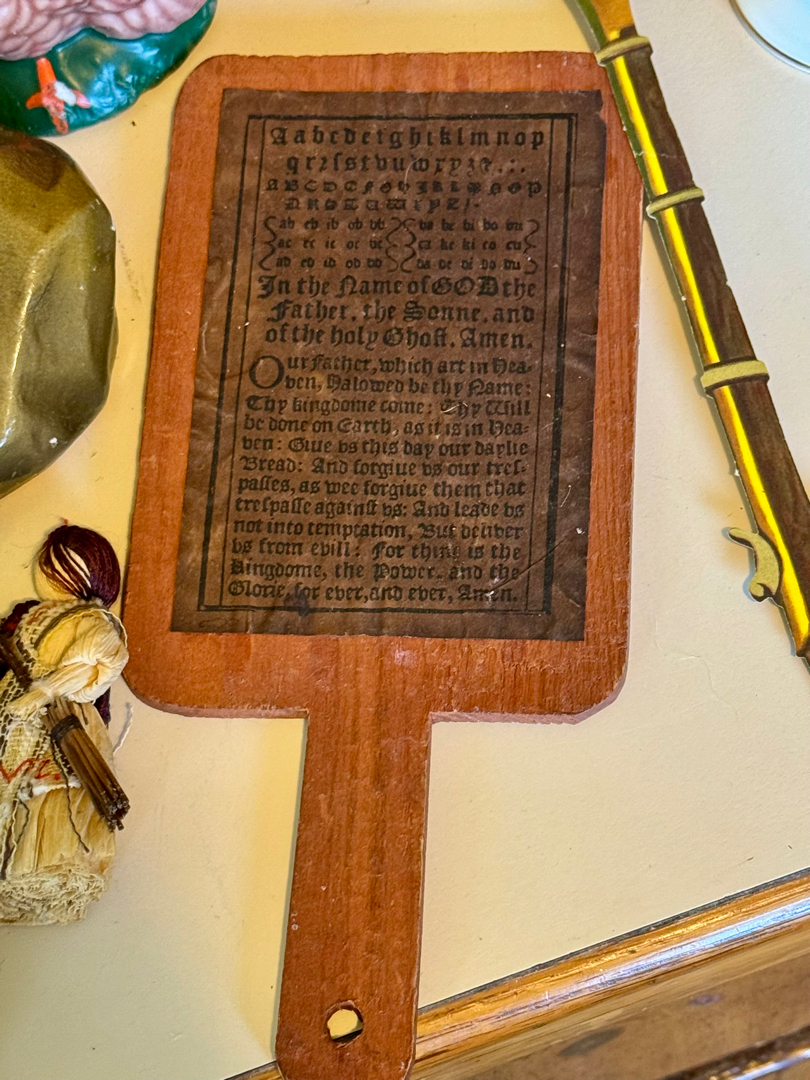 A a b c d e f g h i k l m n o p
q r ꝛ ſ s t v u w x y z
A B C D E F G H I K L M N O P
ab eb ib ob ub ba be bi bo bu
ac ec ic oc uc ca ce ci co cu
ad ed id od ud da de di do du
In the Name of GOD the
Father, the Sonne, and
of the holy Ghoſt. Amen.
Our Father, which art in Hea-
ven, Halowed be thy Name:
Thy kingdome come: Thy Will
be done on Earth, as it is in Hea-
ven: Giue vs this day our daylie
Bread: And forgiue vs our treſ-
paſſes, as wee forgiue them that
treſpaſſe againſt vs: And leade vs
not into temptation, But deliver
vs from evill: For thine is the
kingdome, the Power, and the
Glorie, for ever, and ever, Amen.